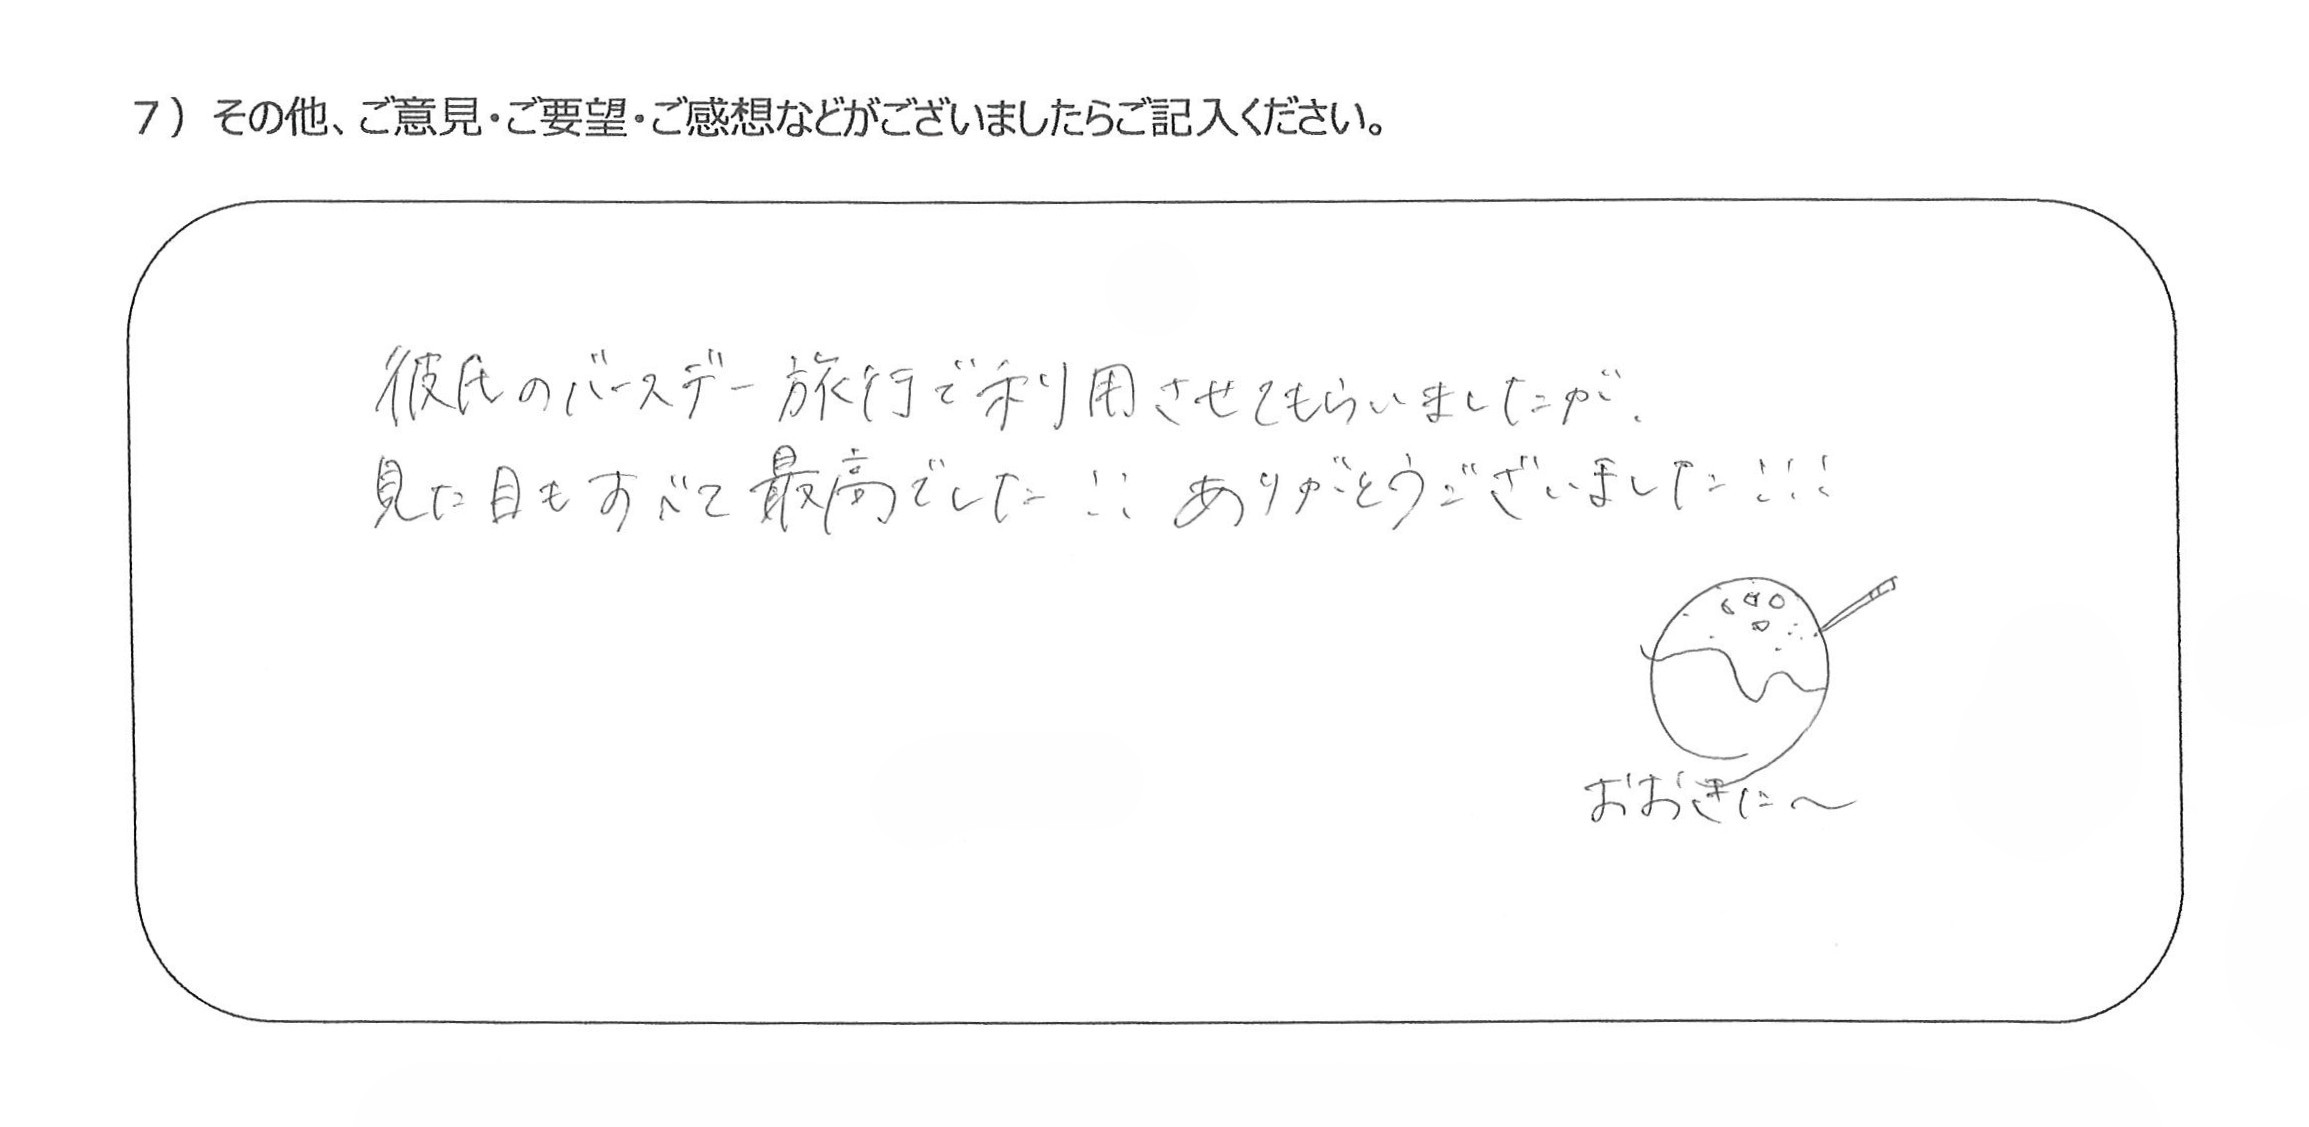 7）その他、ご意見・ご要望・ご感想などがございましたらご記入ください。
彼氏のバースデー旅行で利用させてもらいましたが、
見た目もすべて最高でした!! ありがとうございました!!!
おおきに〜